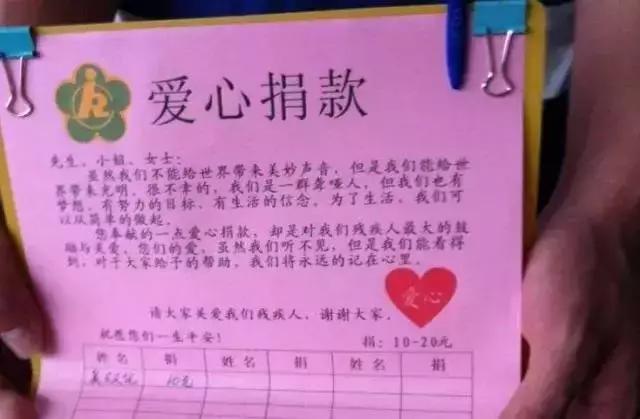 爱心捐款
先生、小姐、女士:
虽然我们不能给世界带来美妙声音,但是我们能给世
界带来光明。很不幸的,我们是一群聋哑人,但我们也有
梦想,有努力的目标,有生活的信念。为了生活,我们可
以从简单的做起。
您奉献的一点爱心捐款,却是对我们残疾人最大的鼓
励与关爱。您们的爱,虽然我们听不见,但是我们能看得
到,对于大家给予的帮助,我们将永远的记在心里。
爱心
请大家关爱我们残疾人,谢谢大家。
祝愿您们一生平安!
捐:10-20元
姓名 捐 姓名 捐 姓名 捐
10元